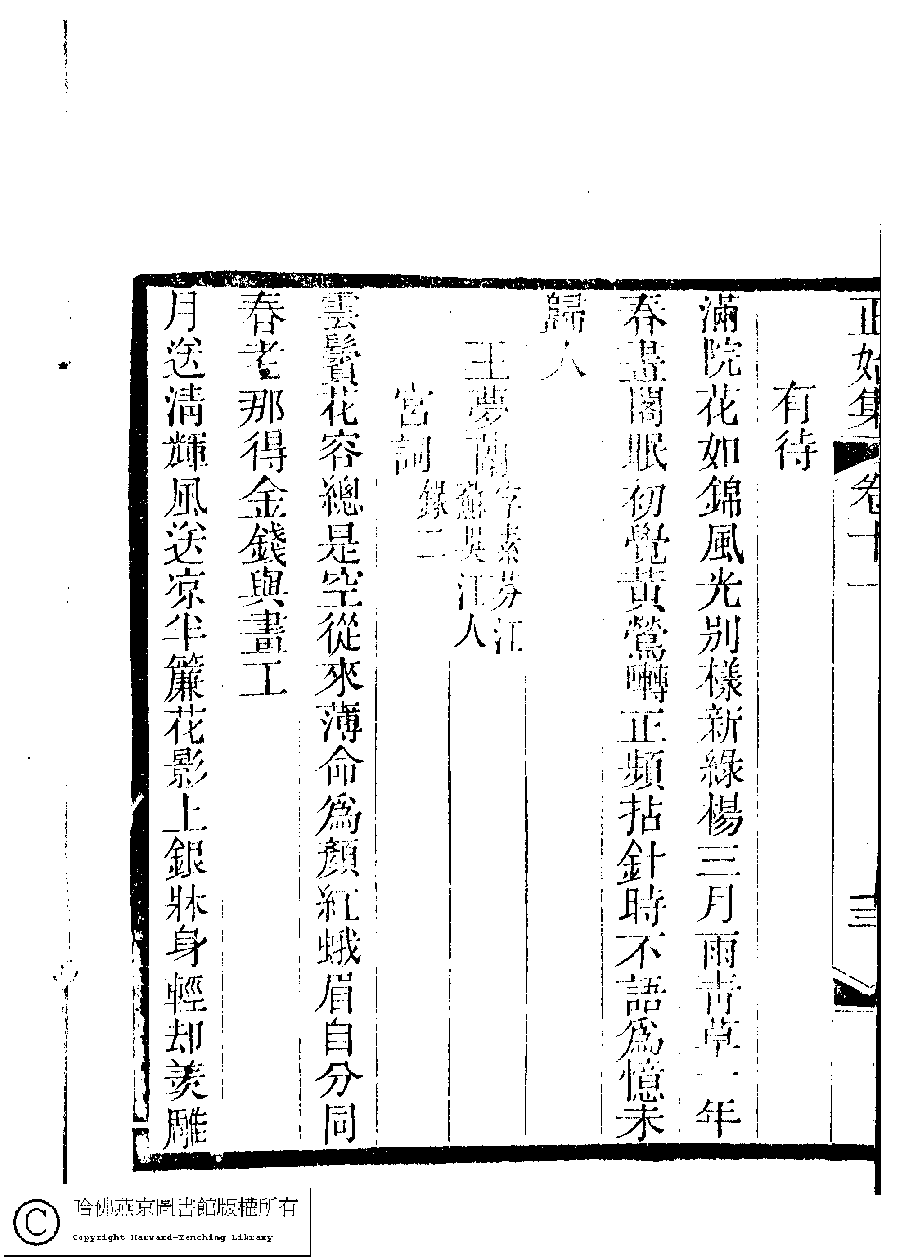 正始集 卷十一 三
有待
滿院花如錦風光別樣新綠楊三月雨靑草一年
春晝閣眠初覺黃鶯囀正頻拈針時不語爲憶未
歸人
王夢蘭字素芬江蘇吳江人
宮詞錄二
雲鬢花容總是空從來薄命爲顏紅蛾眉自分同
春老那得金錢與畫工
月送淸輝風送凉半簾花影上銀牀身輕却羨雕
哈佛燕京圖書館版權所有
Copyright Harvard-Yenching Library